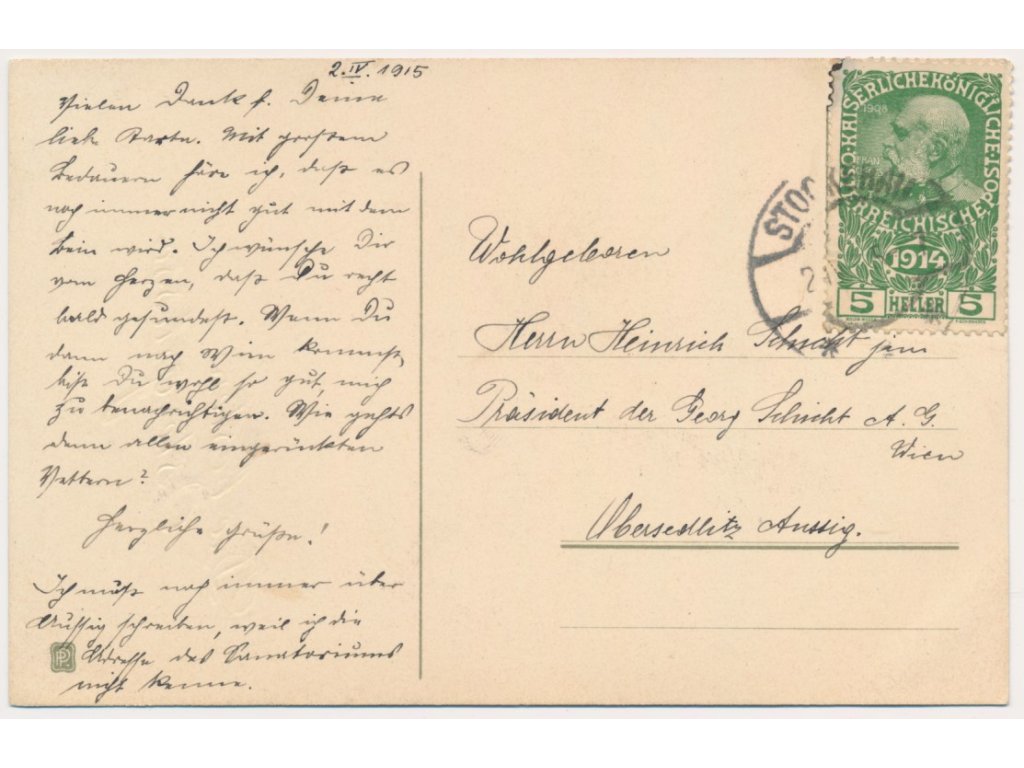 2.IV.1915
Vielen Dank f. Deine
liebe Karte. Mit großem
Bedauern höre ich, daß es
noch immer nicht gut mit dem
Bein wird. Ich wünsche Dir
vom Herzen, daß Du recht
bald gesundest. Wenn Du
dann nach Wien kommst,
bist Du wohl so gut, mich
zu benachrichtigen. Wie gehts
denn allen eingerückten
Vettern?
Herzliche Grüße!
Ich muß noch immer über
Aussig schreiben, weil ich die
Adresse des Sanatoriums
nicht kenne.
PP
KAISERLICHE KÖNIGLICHE
ÖSTERREICHISCHE POST
1908
FRAN
1914
5 HELLER 5
STOCKERAU
Wohlgeboren
Herrn Heinrich Schicht jun
Präsident der Georg Schicht A. G.
Wien
Obersedlitz Aussig.